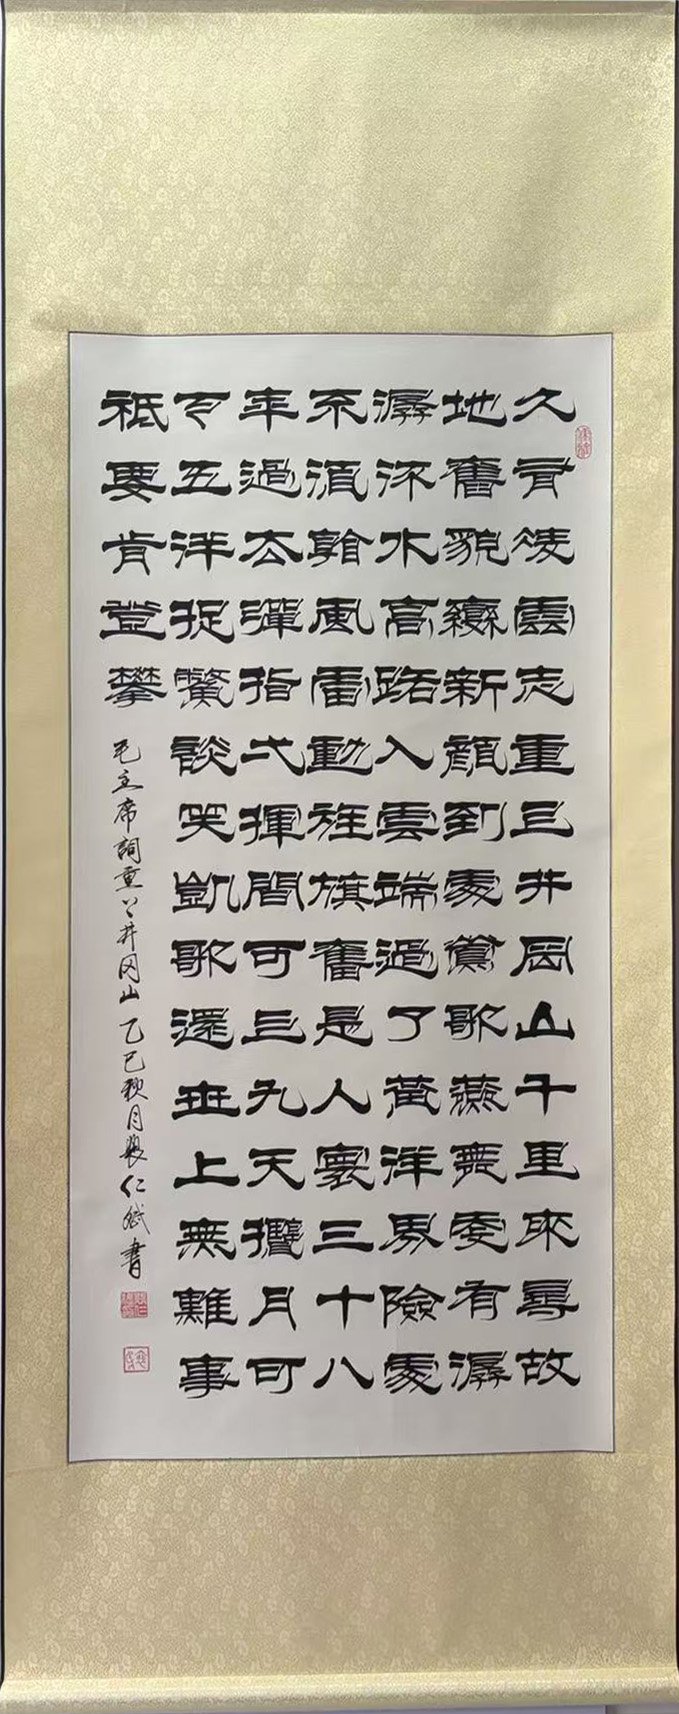 久有凌雲志重上井岡山千里來尋故
地舊貌變新顏到處鶯歌燕舞更有潺
潺流水高路入雲端過了黃洋界險處
不須看風雷動旌旗奮是人寰三十八
年過去彈指弌揮間可上九天攬月可
下五洋捉鱉談笑凱歌還世上無難事
祗要肯登攀
毛主席詞重上井岡山 乙巳秋月張仁斌書